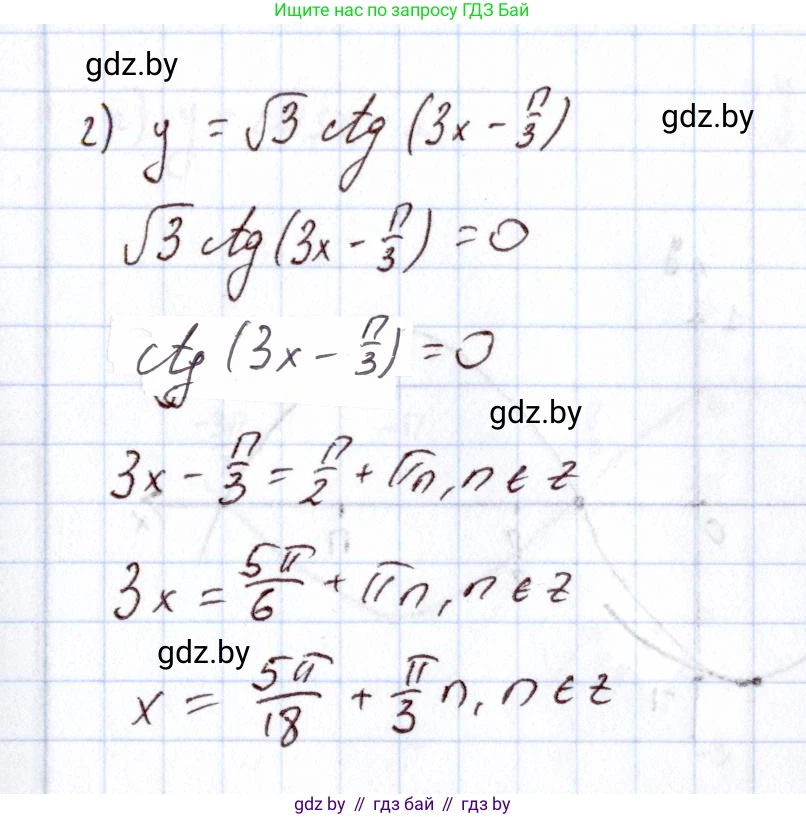 Ищите нас по запросу ГДЗ Бай
gdz.by
gdz.by
г) y = √3 ctg (3x - π/3)
√3 ctg (3x - π/3) = 0
ctg (3x - π/3) = 0
gdz.by
3x - π/3 = π/2 + πn, n ∈ Z
3x = 5π/6 + πn, n ∈ Z
gdz.by
x = 5π/18 + π/3 n, n ∈ Z
gdz.by // гдз бай // gdz.by